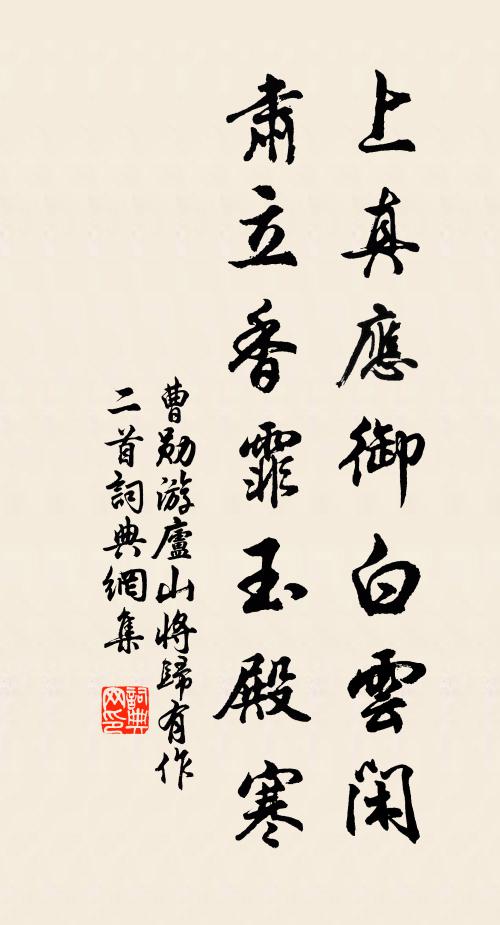 上真應御白雲閑
肅立香霏玉殿寒
曹勛游廬山將歸有作
二首詞典網集
詞典
网印